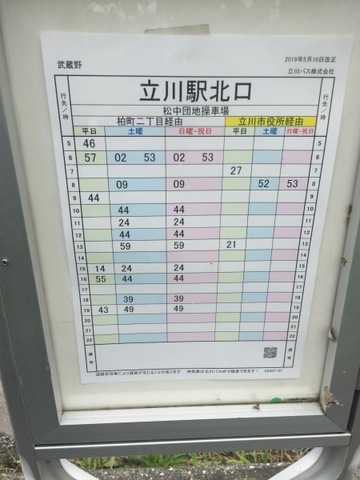 武蔵野
2016年5月16日改正
立川バス株式会社
行先／時 立川駅北口 行先／時
松中団地操車場
柏町二丁目経由 立川市役所経由
平日 土曜 日曜・祝日 平日 土曜 日曜・祝日
5 46 5
6 57 02 53 02 53 6
7 27 7
8 09 09 52 53 8
9 44 9
10 44 44 10
11 24 24 11
12 44 44 12
13 59 59 21 13
14
15 14 24 24 15
16 55 44 44 16
17
18 39 39 18
19 43 49 49 19
20
21 21
22 22
備考 備考